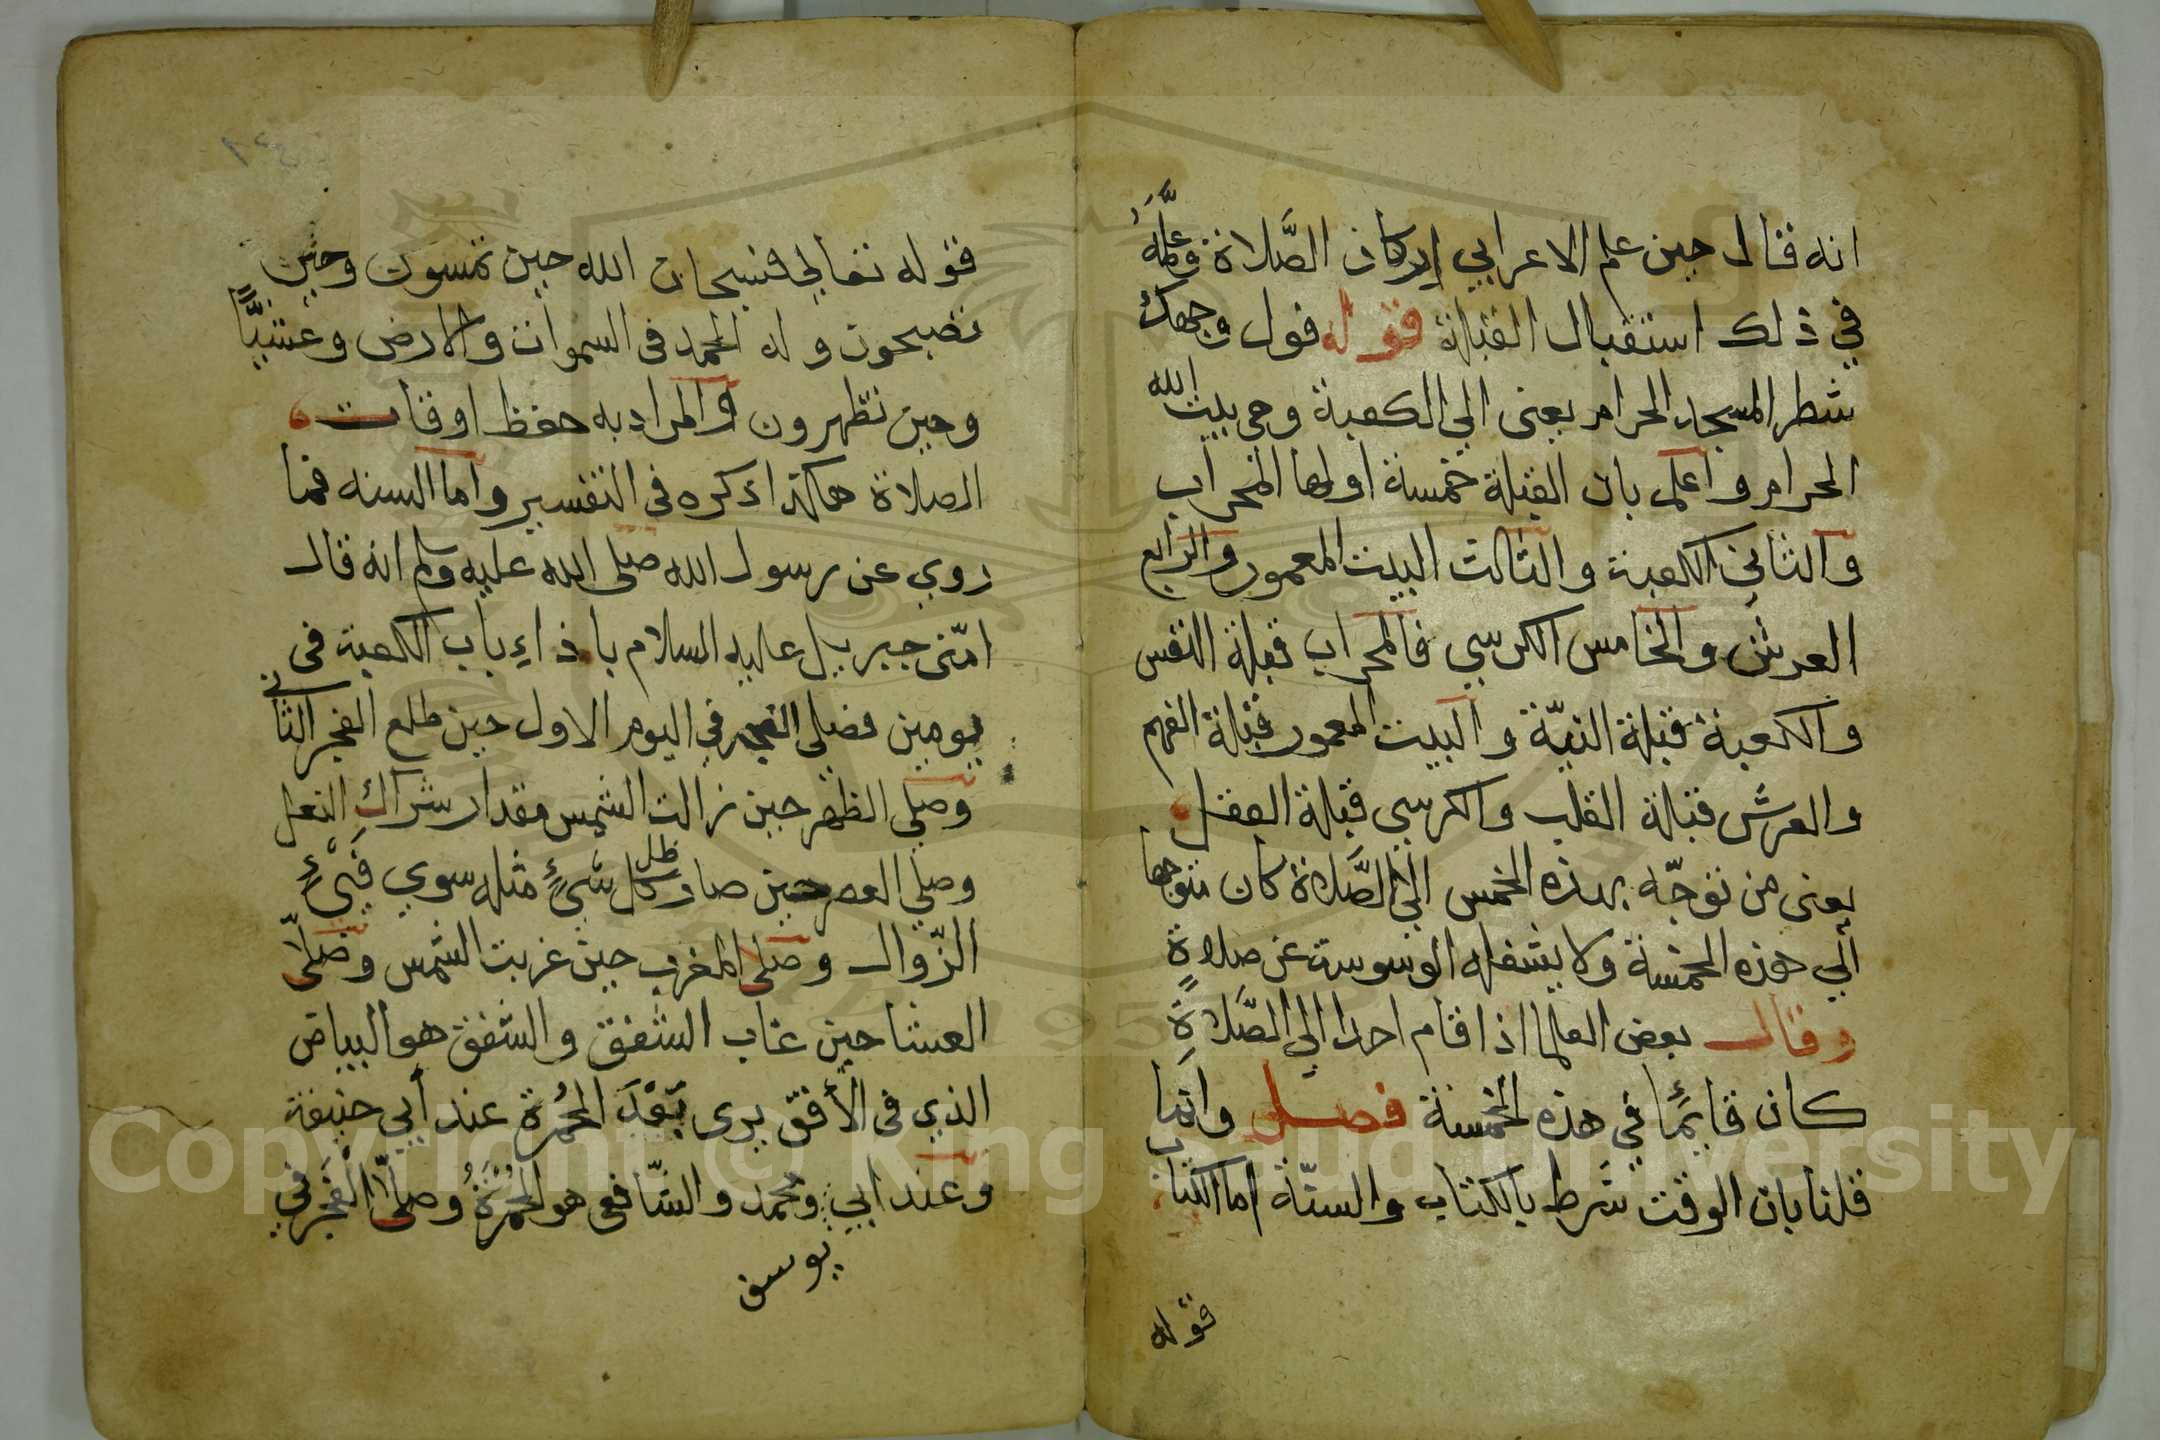 انه قال حين علم الاعرابي اركان الصّلاة وعلّمه
في ذلك استقبال القبلة قوله فول وجهك
شطر المسجد الحرام يعنى الي الكعبة وهي بيت الله
الحرام واعلم بان القبلة خمسة اولها المحراب
والثاني الكعبة والثالث البيت المعمور والرابع
العرش والخامس الكرسي فالمحراب قبلة النفس
والكعبة قبلة النيّة والبيت المعمور قبلة الفهم
والعرش قبلة القلب والكرسي قبلة العقل
يعنى من توجّه بهذه الخمس الي الصّلاة كان متوجها
الي هذه الخمسة ولا يشغله الوسوسة عن صلاةٍ
وقال بعض العلما اذا قام احدا الي الصّلاةِ
كان قايمًا في هذه الخمسة فصل وانما
قلنا بان الوقت شرط بالكتاب والسنّة اما الكتاب
قوله
قوله تعالي فسبحان الله حين تمسون وحين
تصبحون وله الحمد فى السموات والارض وعشيًّا
وحين تظهرون والمراد به حفظ اوقات
الصلاة هاكذا ذكره فى التفسير واما السنه فما
روي عن رسول الله صلى الله عليه وسلم انه قال
امّنى جبريل عليه السلام باذاء باب الكعبة فى
يومين فصلي الفجر في اليوم الاول حين طلع الفجر الثاني
وصلي الظهر حين زالت الشمس مقدار شراك النعل
وصلي العصر حين صار ظل كل شيءٍ مثله سوي فيءٍ
الزّوال وصلى المغرب حين غربت الشمس وصلّى
العشا حين غاب الشفق والشفق هو البياض
الذي فى الأفق يرى بَعْدَ الحُمْرة عند أبي حنيفة
وعند ابي يوسف ومحمد والشّافعى هو الحُمْرَةُ وصلّى الفَجر في